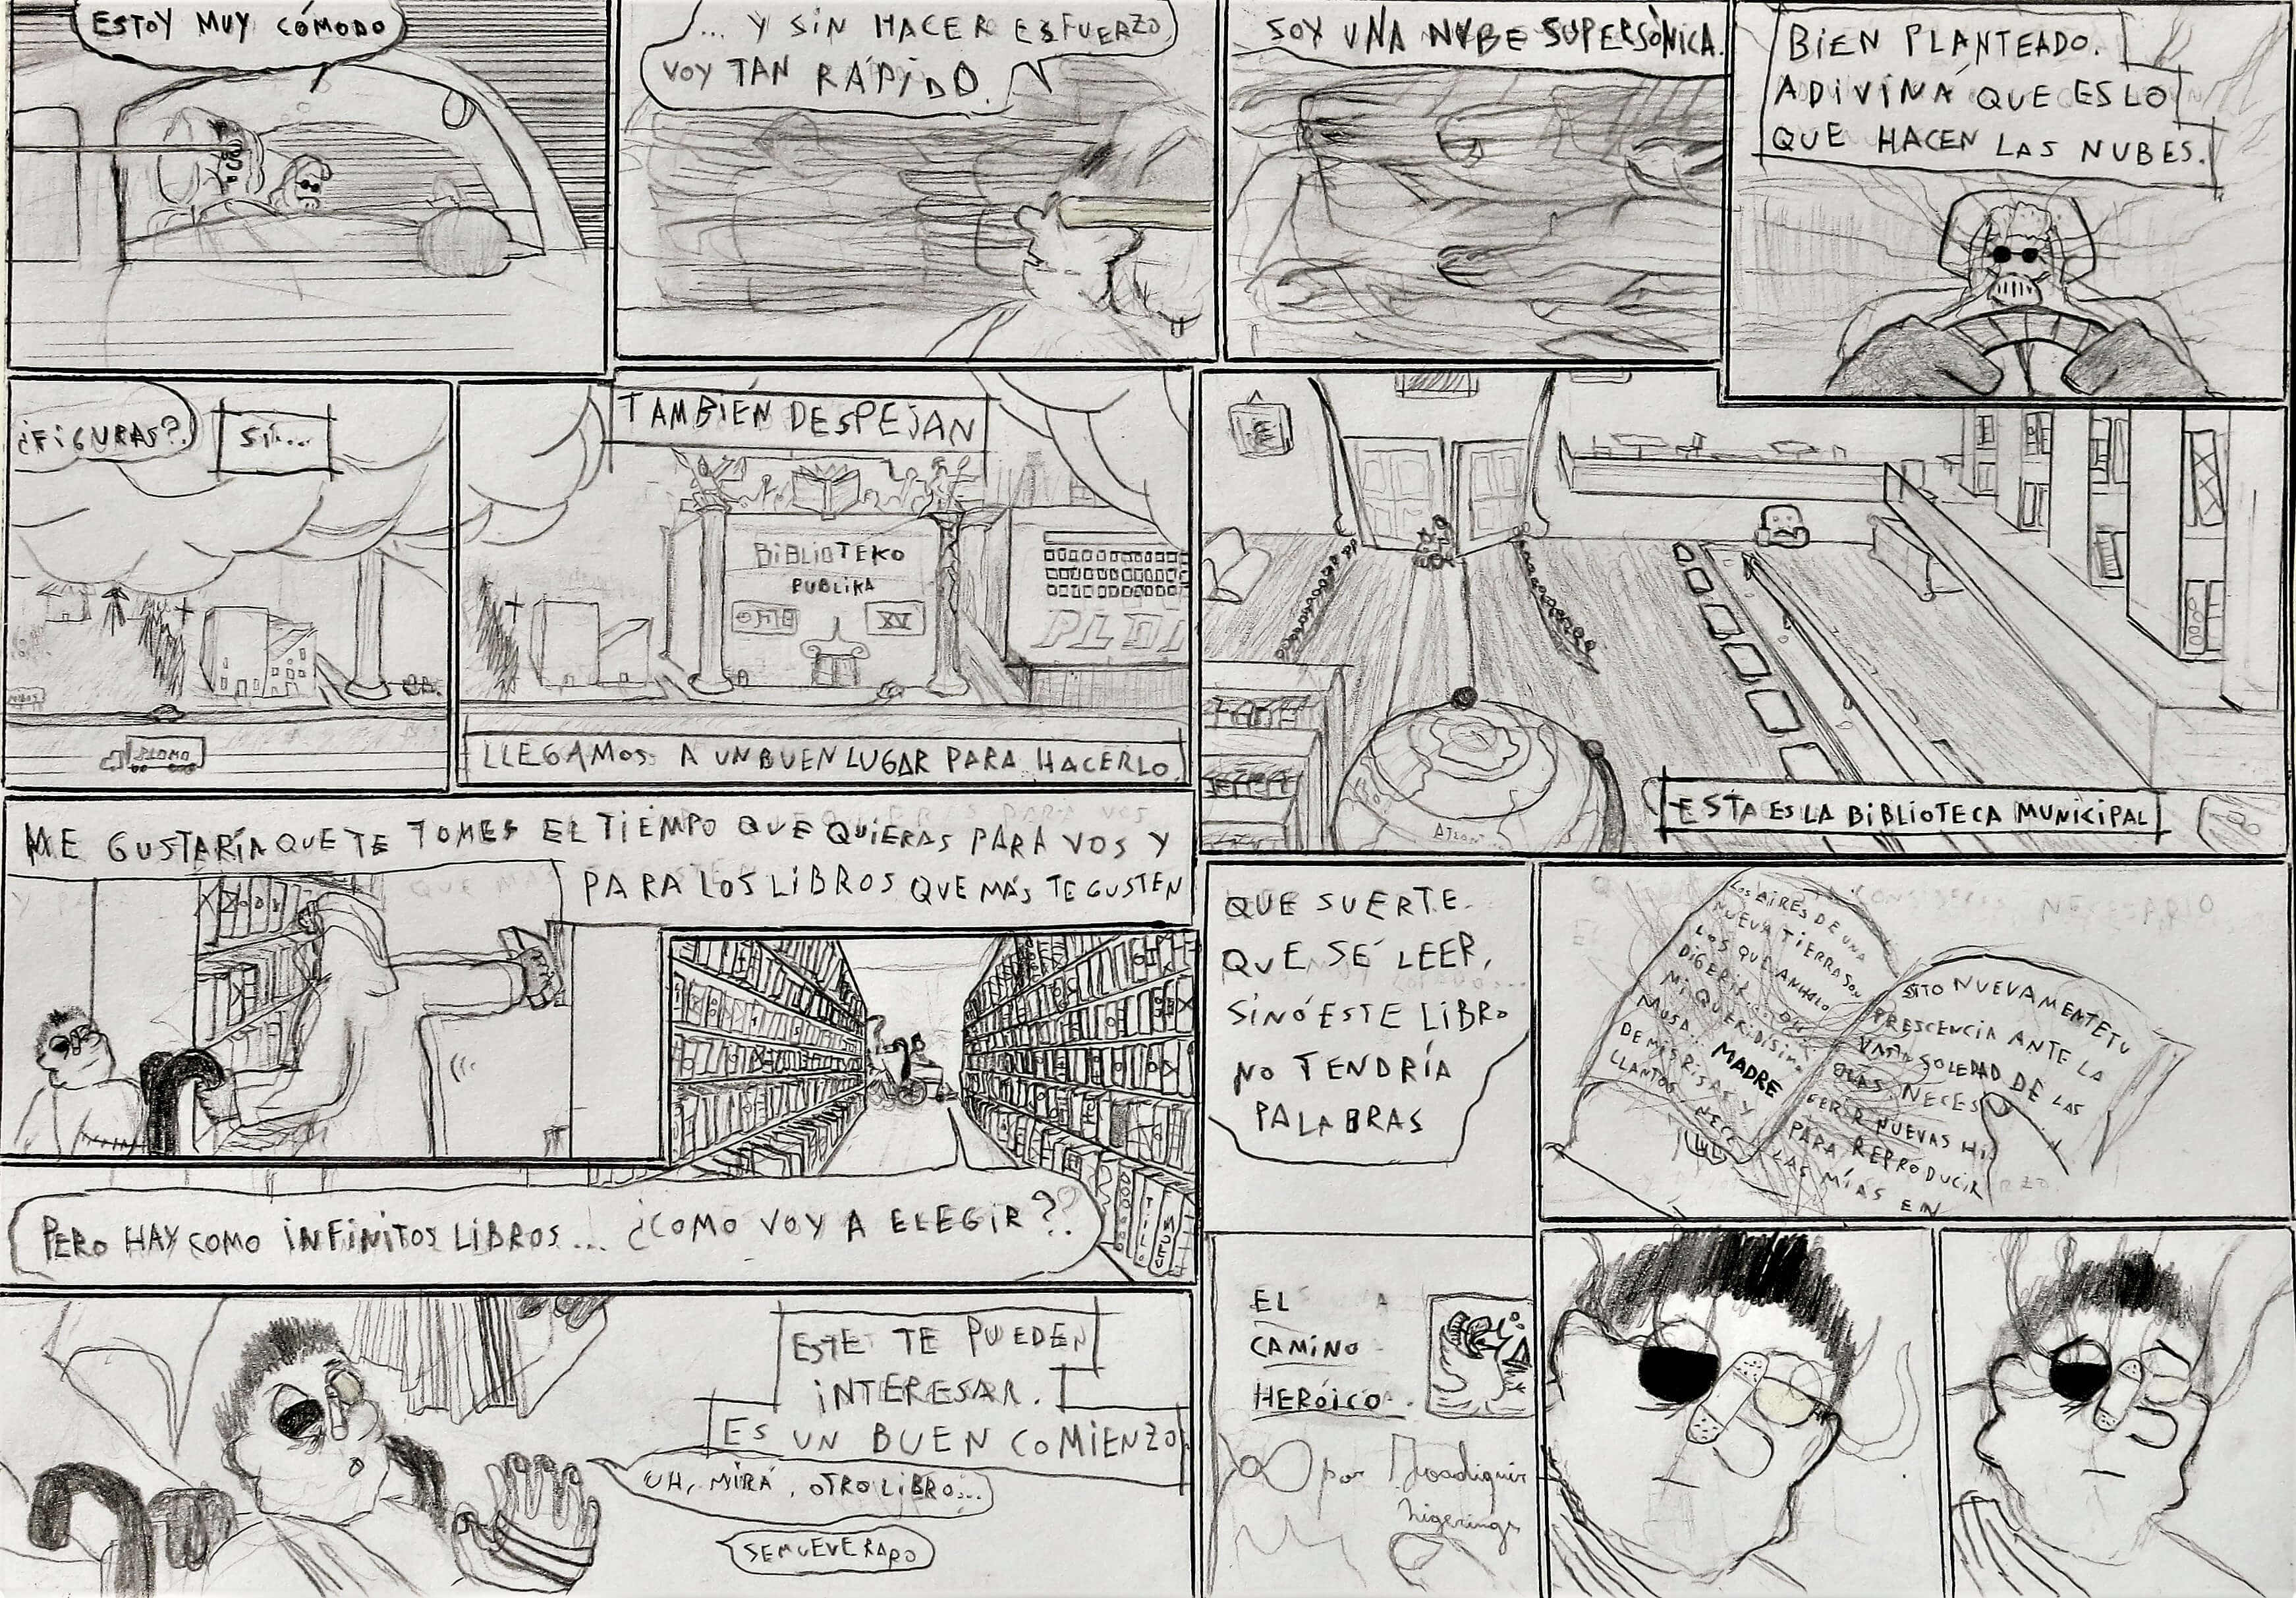 ESTOY MUY CÓMODO
... Y SIN HACER ESFUERZO
VOY TAN RÁPIDO.
SOY UNA NUBE SUPERSÓNICA.
BIEN PLANTEADO.
ADIVINÁ QUE ES LO
QUE HACEN LAS NUBES.
¿FIGURAS?
SÍ....
PLOMO
TAMBIÉN DESPEJAN
BIBLIOTEKO
PUBLIKA
XV
LLEGAMOS A UN BUEN LUGAR PARA HACERLO.
ESTA ES LA BIBLIOTECA MUNICIPAL
ME GUSTARÍA QUE TE TOMES EL TIEMPO QUE QUIERAS PARA VOS Y
PARA LOS LIBROS QUE MÁS TE GUSTEN
PERO HAY COMO INFINITOS LIBROS... ¿COMO VOY A ELEGIR?
ESTE TE PUEDEN
INTERESAR.
ES UN BUEN COMIENZO
UH, MIRÁ, OTRO LIBRO...
SE MUEVE RARO
QUE SUERTE
QUE SÉ LEER,
SINÓ ESTE LIBRO
NO TENDRÍA
PALABRAS
LOS AIRES DE UNA
NUEVA TIERRA SON
LOS QUE ANHELO
DIGERIR
MI QUERIDÍSIMA
MUSA.. MADRE
DE MIS RISAS Y
LLANTOS. NECE
SITO NUEVAMENTE TU
PRESCENCIA ANTE LA
VASTA SOLEDAD DE LAS
OLAS. NECESI
GERIR NUEVAS HI
PARA REPRODUCIR
LAS MÍAS EN
EL
CAMINO
HERÓICO.
por